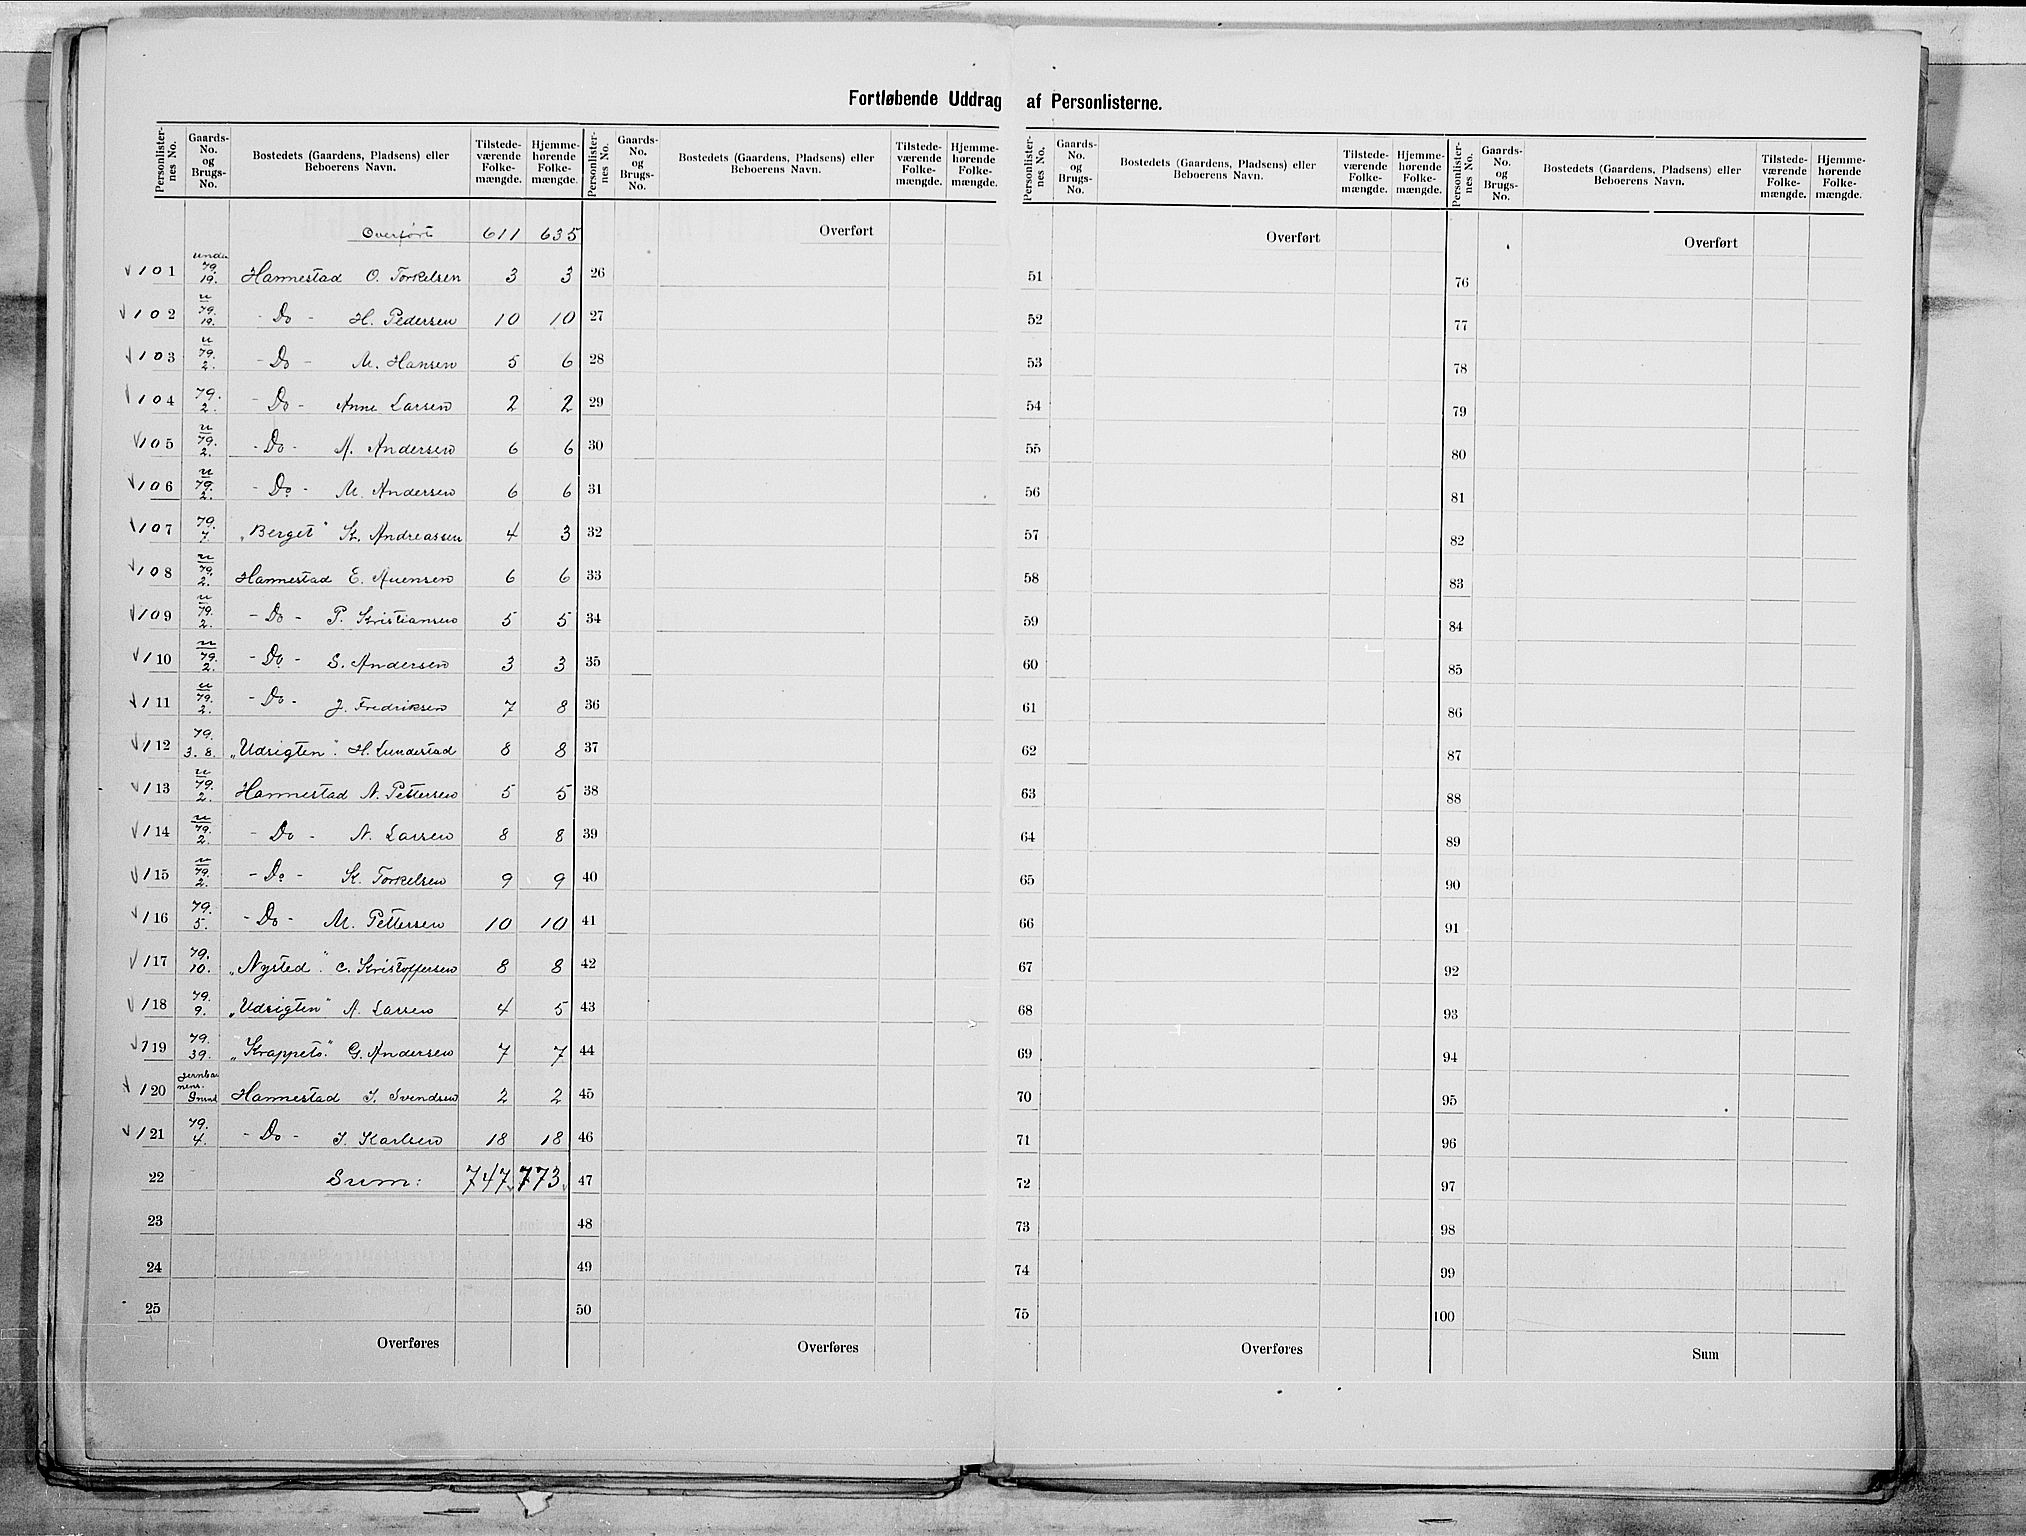 Fortløbende Uddrag af Personlisterne.
Personlister-nes No. Gaards-No. og Brugs-No. Bostedets (Gaardens, Pladsens) eller Beboerens Navn. Tilstede-værende Folke-mængde. Hjemme-hørende Folke-mængde.
Overført 611 635
101 under 79. 19. Hannestad O. Torkelsen 3 3
102 u 79. 19. - Do - H. Pedersen 10 10
103 u 79. 2. - Do - M. Hansen 5 6
104 79. 2. - Do - Anne Larsen 2 2
105 u 79. 2. - Do - A. Andersen 6 6
106 u 79. 2. - Do - M. Andersen 6 6
107 79. 7. „Berget" K. Andreassen 4 3
108 u 79. 2. Hannestad E. Auensen 6 6
109 u 79. 2. - Do - P. Kristiansen 5 5
110 u 79. 2. - Do - S. Andersen 3 3
111 u 79. 2. - Do - J. Fredriksen 7 8
112 79. 3. 8. „Udsigten". H. Lundestad 8 8
113 u 79. 2. Hannestad N. Pettersen 5 5
114 u 79. 2. - Do - N. Larsen 8 8
115 u 79. 2. - Do - K. Torkelsen 9 9
116 79. 5. - Do - M. Pettersen 10 10
117 79. 10. „Nysted". C. Kristoffersen 8 8
118 79. 9. „Udsigten" A. Larsen 4 5
119 79. 39. „Krappets." G. Andersen 7 7
120 Jernbanens Grund Hannestad J. Svendsen 2 2
121 79. 4. - Do - J. Karlsen 18 18
22 Sum: 747 773
23
24
25
Overføres
Personlister-nes No. Gaards-No. og Brugs-No. Bostedets (Gaardens, Pladsens) eller Beboerens Navn. Tilstede-værende Folke-mængde. Hjemme-hørende Folke-mængde.
Overført
26
27
28
29
30
31
32
33
34
35
36
37
38
39
40
41
42
43
44
45
46
47
48
49
50
Overføres
Personlister-nes No. Gaards-No. og Brugs-No. Bostedets (Gaardens, Pladsens) eller Beboerens Navn. Tilstede-værende Folke-mængde. Hjemme-hørende Folke-mængde.
Overført
51
52
53
54
55
56
57
58
59
60
61
62
63
64
65
66
67
68
69
70
71
72
73
74
75
Overføres
Personlister-nes No. Gaards-No. og Brugs-No. Bostedets (Gaardens, Pladsens) eller Beboerens Navn. Tilstede-værende Folke-mængde. Hjemme-hørende Folke-mængde.
Overført
76
77
78
79
80
81
82
83
84
85
86
87
88
89
90
91
92
93
94
95
96
97
98
99
100
Sum